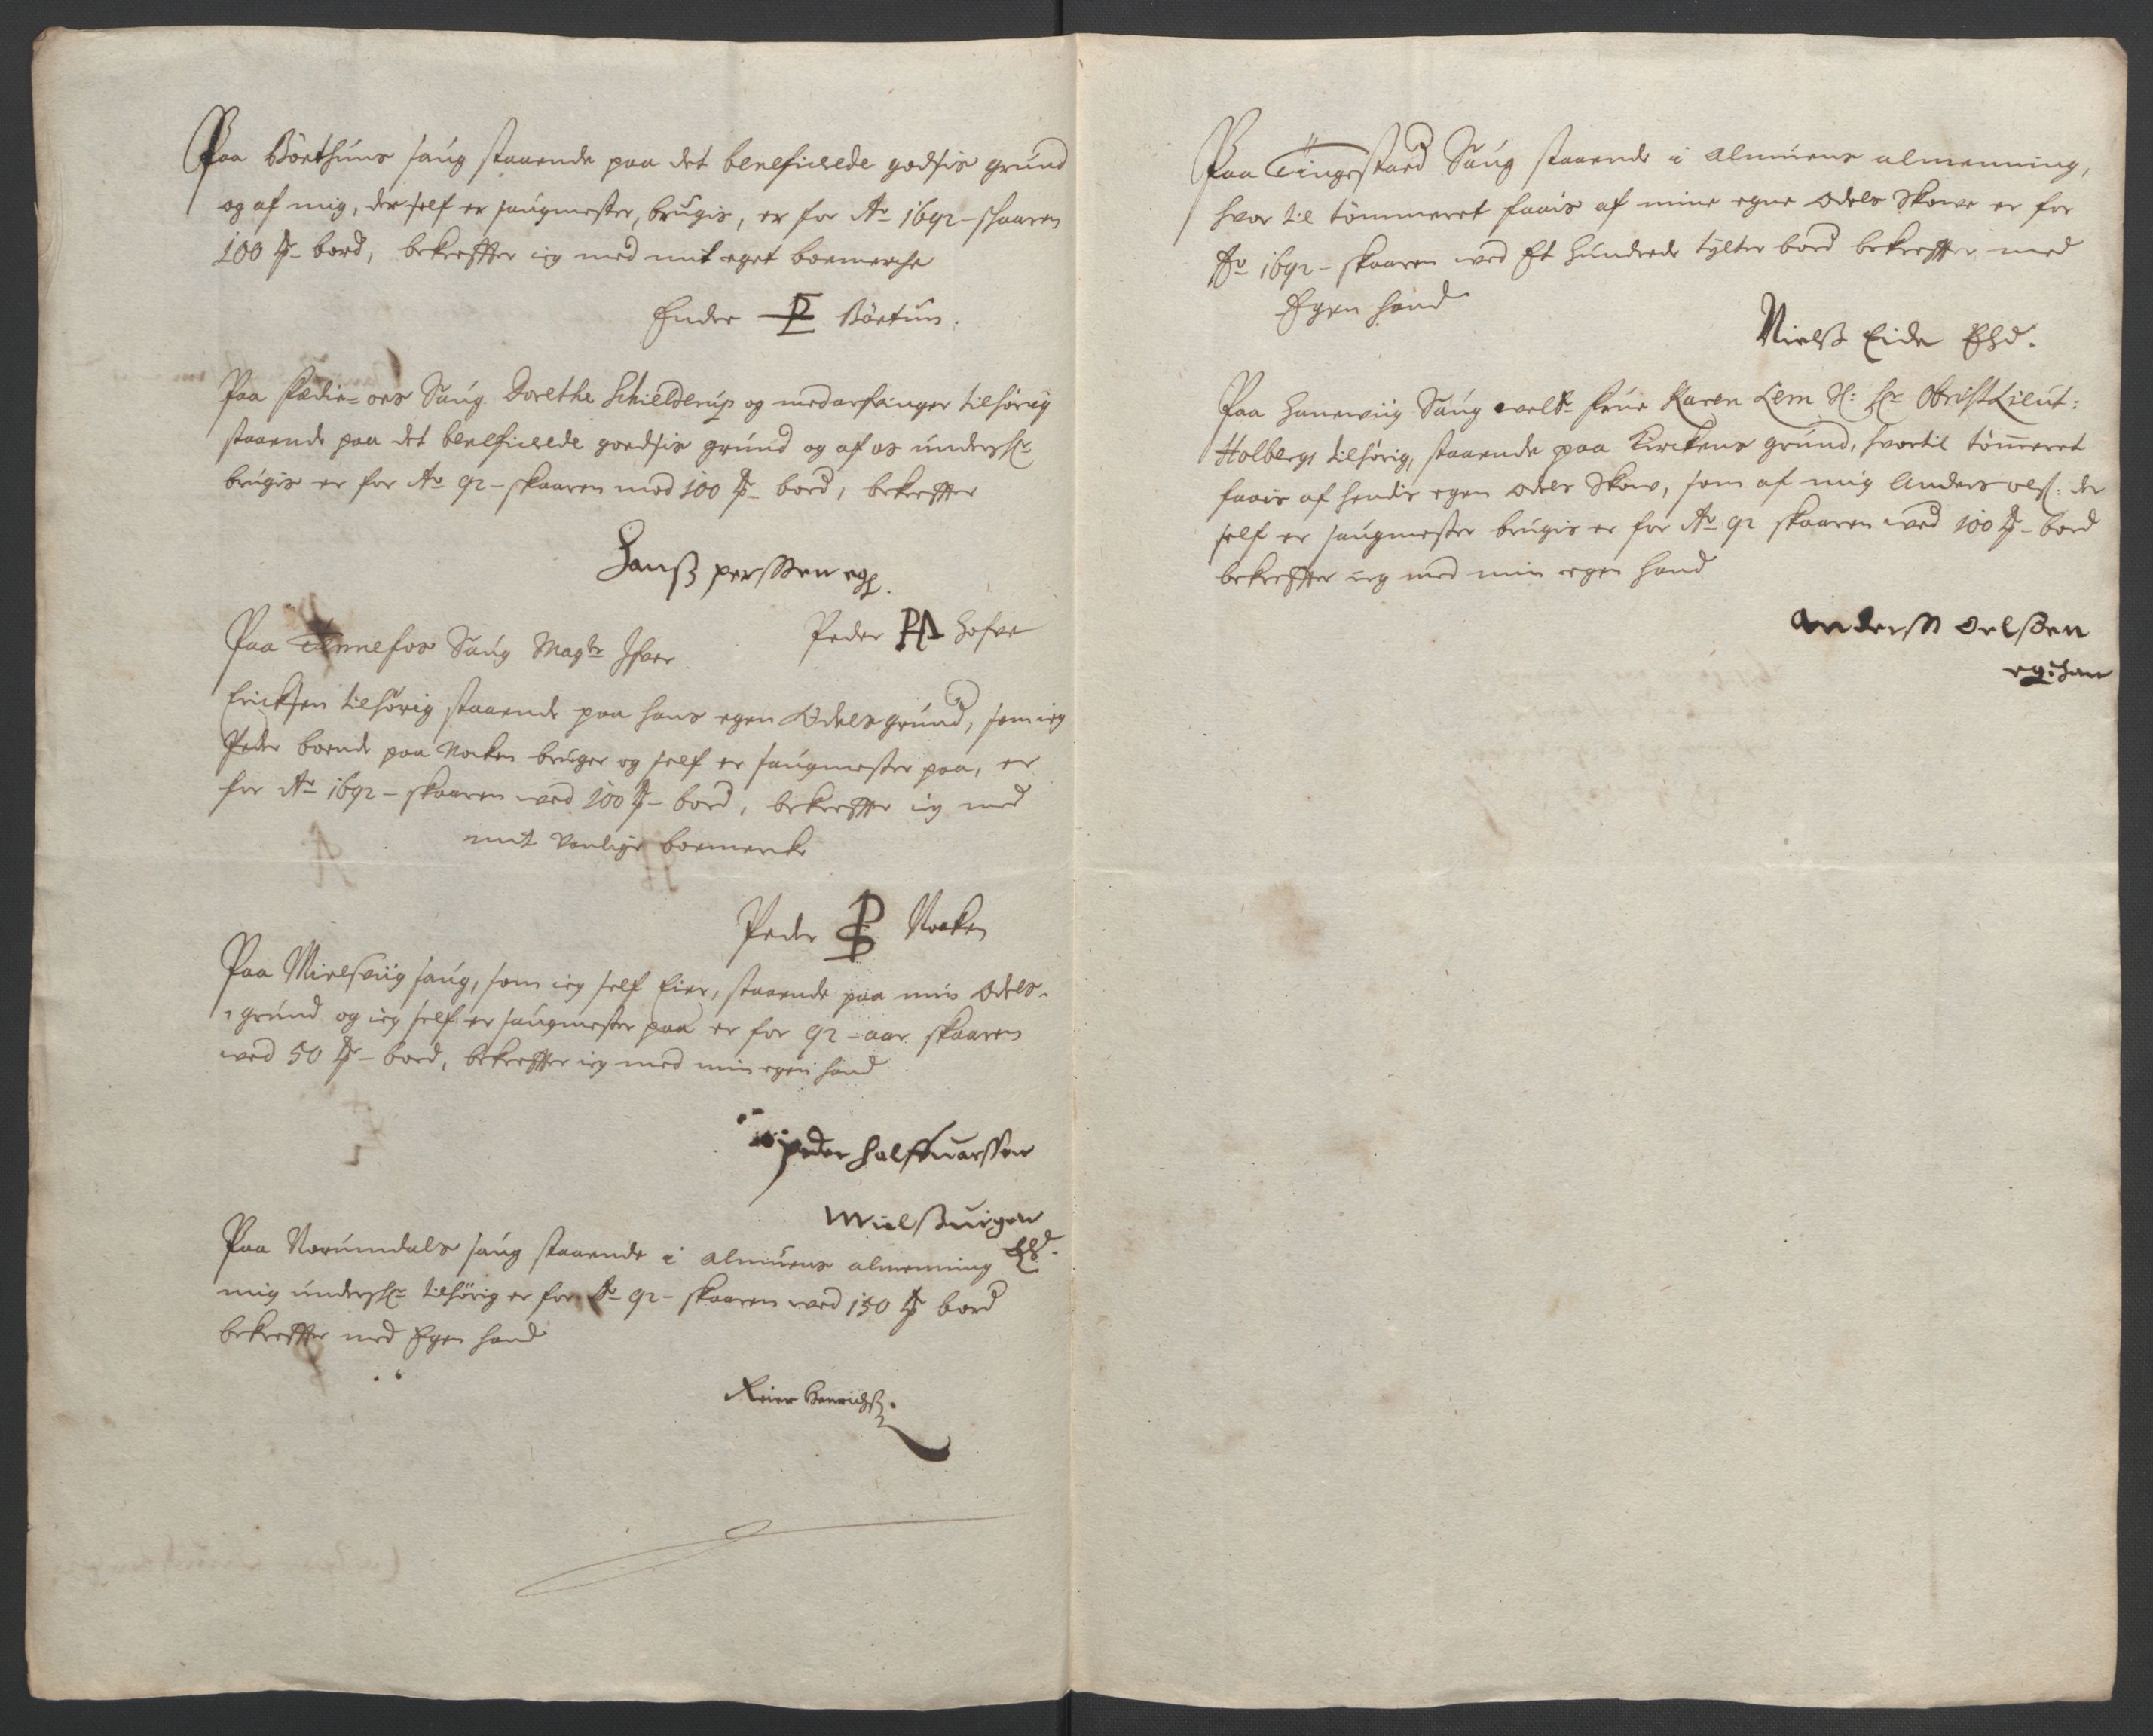 Paa Börthuns saug staaende paa det beneficerede godsis grund
og af mig, der self er saugmester, brugis, er for Ao 1692 - skaaren
100 tt bord, bekreffter ieg med mit eget boemerche
Ender Börtun.
Paa Fædie-oes Saug Dorethe Schielderup og medarfvinger tilhörig
staaende paa det beneficerede goedsis grund og af os undersk:
brugis er for Ao 92 - skaaren med 100 tt bord, bekreffter
Hanß perssen egh.
Peder PA Hofve
Paa Tennefos Saug Magtr Ifver
Ericksen tilhörig staaende paa hans egen Odels grund, som ieg
Peder boende paa Norken bruger og self er saugmester paa, er
for Ao 1692 - skaaren med 100 tt - bord, bekreffter ieg med
mit vanlige boemercke
Peder Norken
Paa Mielsviig saug, som ieg self Eier, staaende paa min Odels-
grund og ieg self er saugmester paa er for 92 - aar skaaren
med 50 tt - bord, bekreffter ieg med min egen hand
peder halffuarssen
Mielßuigen
Ehd.
Paa Norumdals saug staaende i almuens almenning
mig undersk: tilhörig er for Ao 92 - skaaren med 150 tt bord
bekreffter med Egen hand
Reier Henrichß.
Paa Tingstaed Saug staaende i almuens almenning,
hvor til tömmeret faais af mine egne odels Skowe er for
Ao 1692 - skaaren med Et Hundrede tylter bord bekreffter med
Egen hand
Nielß Eide Ehd.
Paa Hanewiig Saug welbr frue Karen Lem Sl: Hr ObristLieut:
Holbergs tilhörig, staaende paa Kirckens grund, hvortil tömmeret
faais af hendis egen odels Skow, som af mig Anders ols: der
self er saugmester brugis er for Ao 92 skaaren med 100 tt - bord
bekreffter ieg med min egen hand
Anderss Oelßen
eg:han